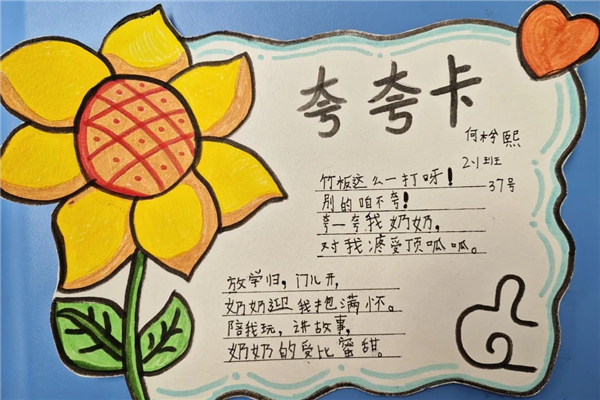 夸夸卡
何 熙
班
37号
竹板这么一打呀！
别的咱不夸！
夸一夸我奶奶，
对我疼爱顶呱呱。
放学归，门儿开，
奶奶迎我抱满怀。
陪我玩，讲故事，
奶奶的爱比蜜甜。